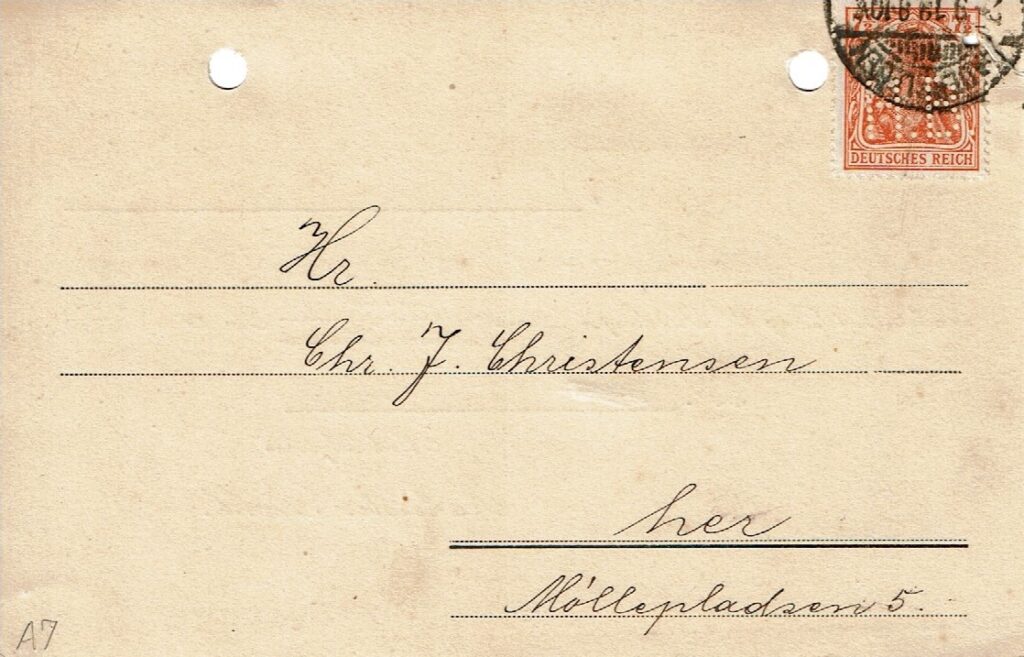 7½ 7½
DEUTSCHES REICH
Hr.
Chr. J. Christensen
her
Möllepladsen 5.
A7